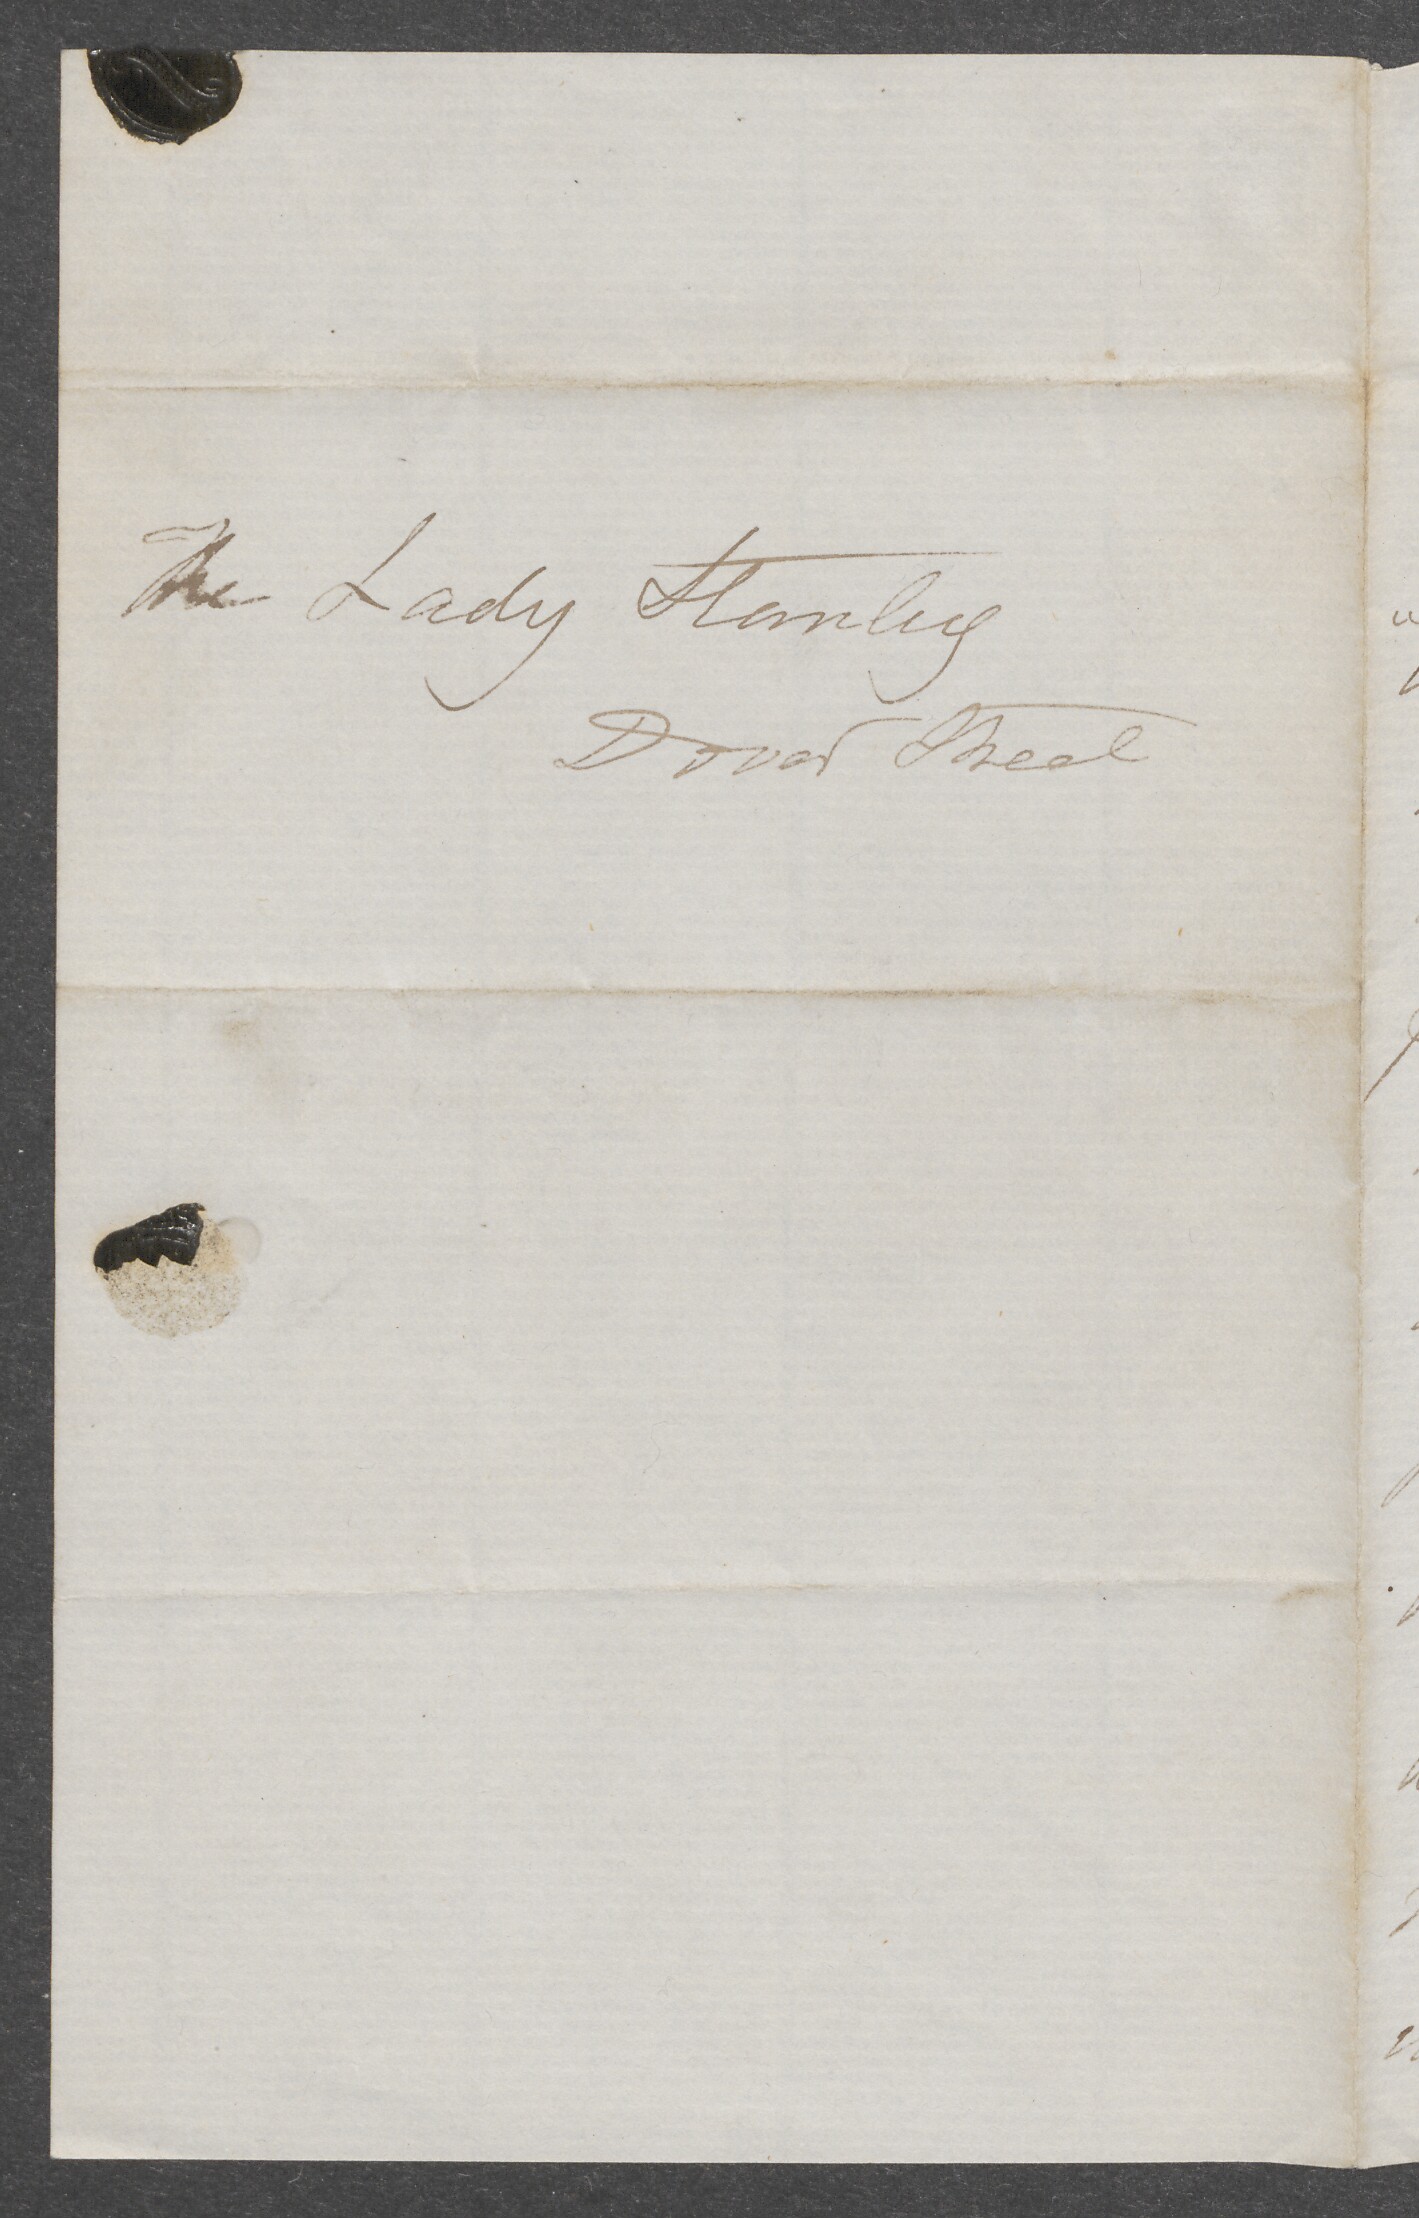 The Lady Stanley
Dover Street